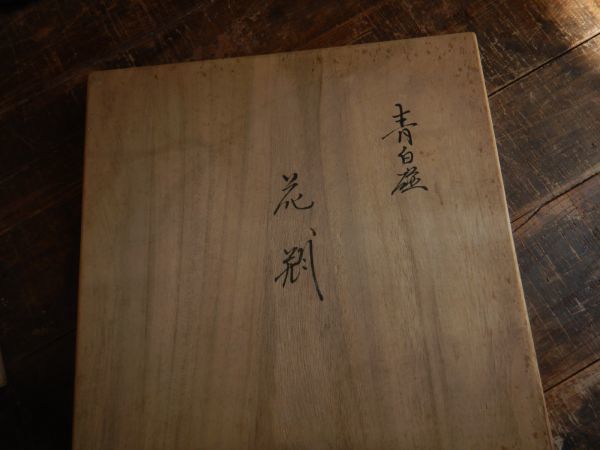 青白磁
花瓶